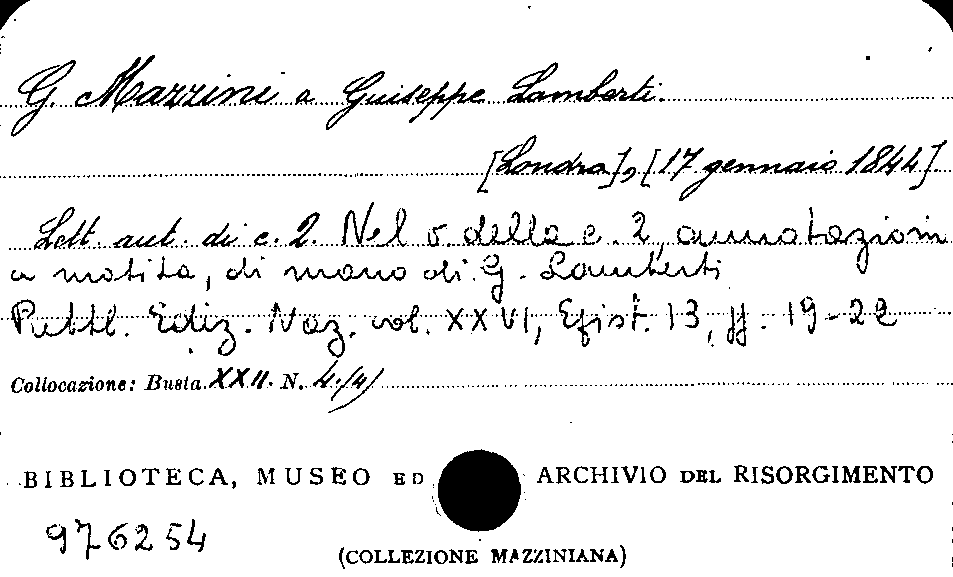 G. Mazzini a Guiseppe Lamberti.
[Londra], [17 gennaio 1844]
Lett. aut. di c. 2. Nel v. della c. 2, annotazioni
a matita, di mano di G. Lamberti
Pubbl. Ediz. Naz. vol. XXVI, Epist. 13, pp. 19-22
Collocazione: Busta XXII. N. 4/(4)
BIBLIOTECA, MUSEO ED ARCHIVIO DEL RISORGIMENTO
976254
(COLLEZIONE MAZZINIANA)